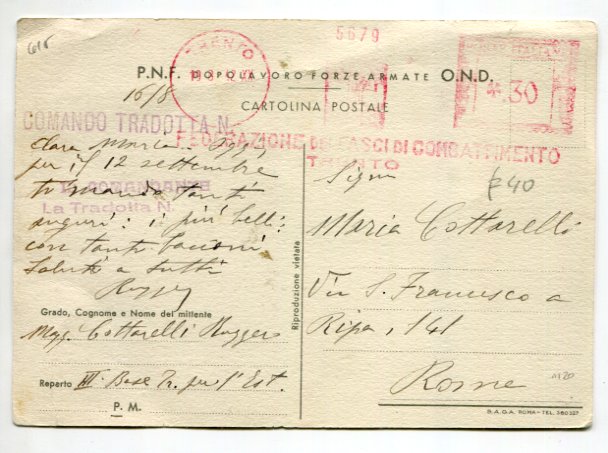 615
5679
TRENTO
POSTE ITALIANE
*.30
P.N.F. DOPOLAVORO FORZE ARMATE O.N.D.
CARTOLINA POSTALE
16/8
COMANDO TRADOTTA N.
FEDERAZIONE DEI FASCI DI COMBATTIMENTO
TRENTO
Cara Maria
per il 12 settembre
ti mando tanti
auguri: i più belli:
con tanti bacioni
Saluti a tutti
IL COMANDANTE
La Tradotta N.
Grado, Cognome e Nome del mittente
Magg. Cottarelli Ruggero
Reparto III Base Tr. per l'Est.
P. M.
Riproduzione vietata
£40
Maria Cottarelli
Via S. Francesco a
Ripa, 141
Roma
B.A.G.A. ROMA-TEL. 380327